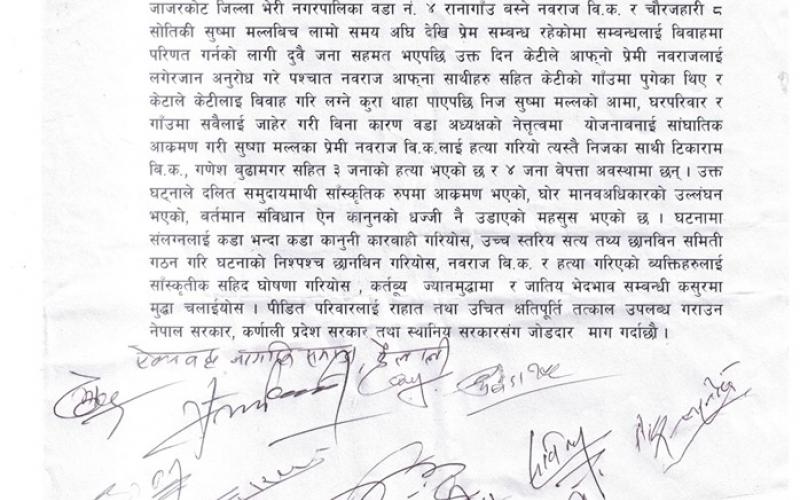 जाजरकोट जिल्ला भेरी नगरपालिका वडा नं. ४ रानागाउँ बस्ने नवराज वि.क. र चौरजहारी ८
सोतिकी सुष्मा मल्लबिच लामो समय अघि देखि प्रेम सम्बन्ध रहेकोमा सम्बन्धलाई विवाहमा
परिणत गर्नको लागी दुवै जना सहमत भएपछि उक्त दिन केटीले आफ्नो प्रेमी नवराजलाई
लगेरजान अनुरोध गरे पश्चात नवराज आफ्ना साथीहरु सहित केटीको गाउँमा पुगेका थिए र
केटाले केटीलाइ बिवाह गरि लग्ने कुरा थाहा पाएपछि निज सुष्मा मल्लको आमा, घरपरिवार र
गाउँमा सवैलाई जाहेर गरी विना कारण वडा अध्यक्षको नेत्तृत्वमा योजनावनाई सांघातिक
आक्रमण गरी सुष्मा मल्लका प्रेमी नवराज वि.क.लाई हत्या गरियो त्यस्तै निजका साथी टिकाराम
बि.क., गणेश बुढामगर सहित ३ जनाको हत्या भएको छ र ४ जना बेपत्ता अवस्थामा छन् । उक्त
घट्नाले दलित समुदायमाथी साँस्कृतिक रुपमा आक्रमण भएको, घोर मानवअधिकारको उल्लंघन
भएको, वर्तमान संविधान ऐन कानुनको धज्जी नै उडाएको महसुस भएको छ । घटनामा
संलग्नलाई कडा भन्दा कडा कानुनी कारवाही गरियोस, उच्च स्तरिय सत्य तथ्य छानविन समिती
गठन गरि घटनाको निश्पश्च छानविन गरियोस, नवराज वि.क. र हत्या गरिएको व्यक्तिहरुलाई
साँस्कृतीक सहिद घोषणा गरियोस , कर्तब्य ज्यानमुद्धामा र जातिय भेदभाव सम्वन्धी कसुरमा
मुद्धा चलाईयोस । पीडित परिवारलाई राहात तथा उचित क्षतिपूर्ति तत्काल उपलब्ध गराउन
नेपाल सरकार, कर्णाली प्रदेश सरकार तथा स्थानिय सरकारसंग जोडदार माग गर्दाछौ ।